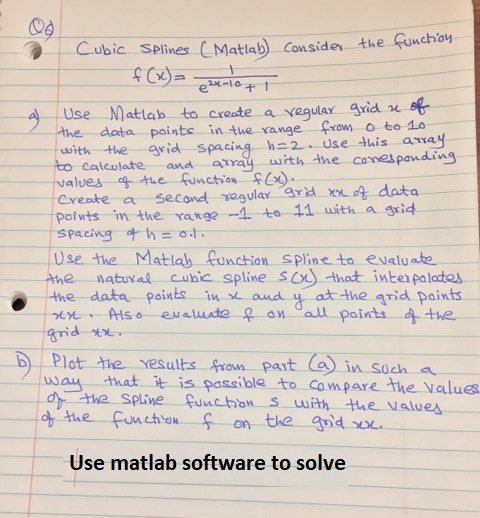 Q6)
Cubic Splines (Matlab) Consider the function
f(x) = 1 / e^{2x-10} + 1
a) Use Matlab to create a regular grid x of
the data points in the range from 0 to 10
with the grid spacing h=2. Use this array
to calculate and array with the corresponding
values of the function f(x).
Create a second regular grid xx of data
points in the range -1 to 11 with a grid
spacing of h = 0.1.
Use the Matlab function spline to evaluate
the natural cubic spline S(x) that interpolates
the data points in x and y at the grid points
xx. Also evaluate f on all points of the
grid xx.
b) Plot the results from part (a) in such a
way that it is possible to compare the values
of the spline function s with the values
of the function f on the grid xx.
Use matlab software to solve